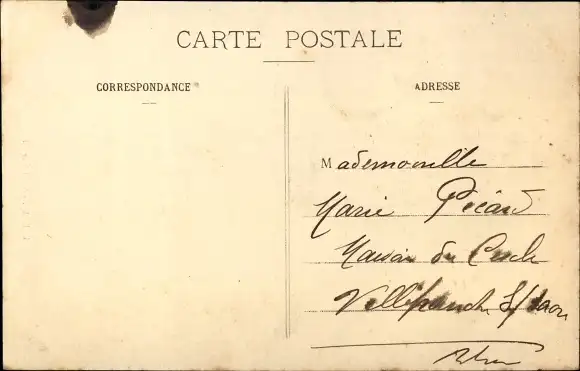 CARTE POSTALE
CORRESPONDANCE
ADRESSE
Mademoiselle
Marie Picard
Maison du Cercle
Villefranche S/ Saone
Rhone